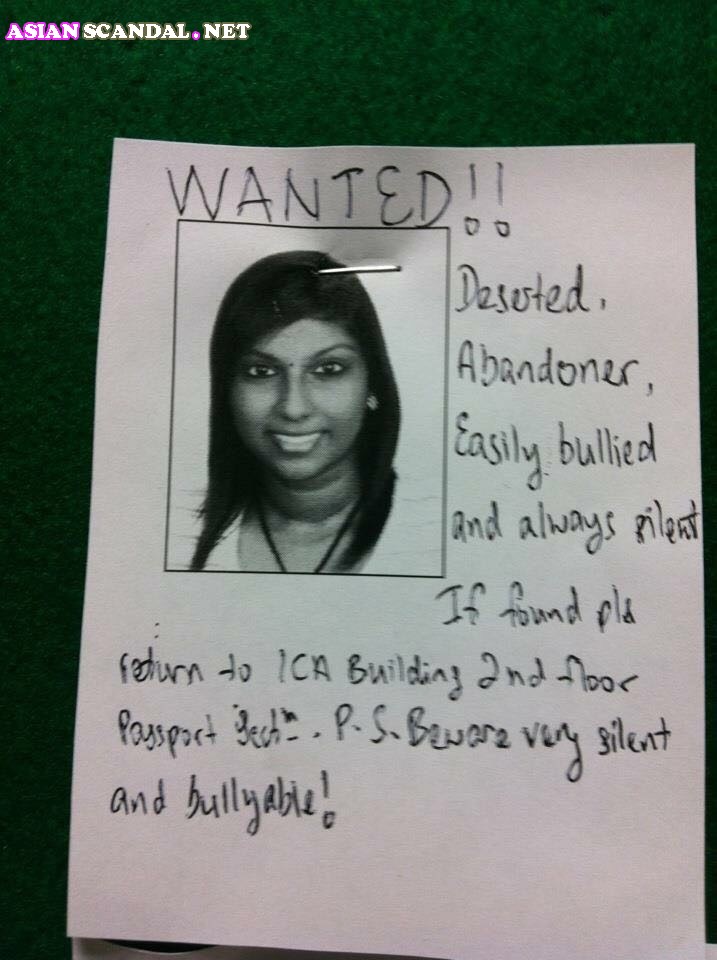 ASIAN SCANDAL.NET
WANTED!!
Deserted,
Abandoner,
Easily bullied
and always silent
If found pls
return to ICA Building 2nd floor
Passport Sectn. P.S. Beware very silent
and bullyable!